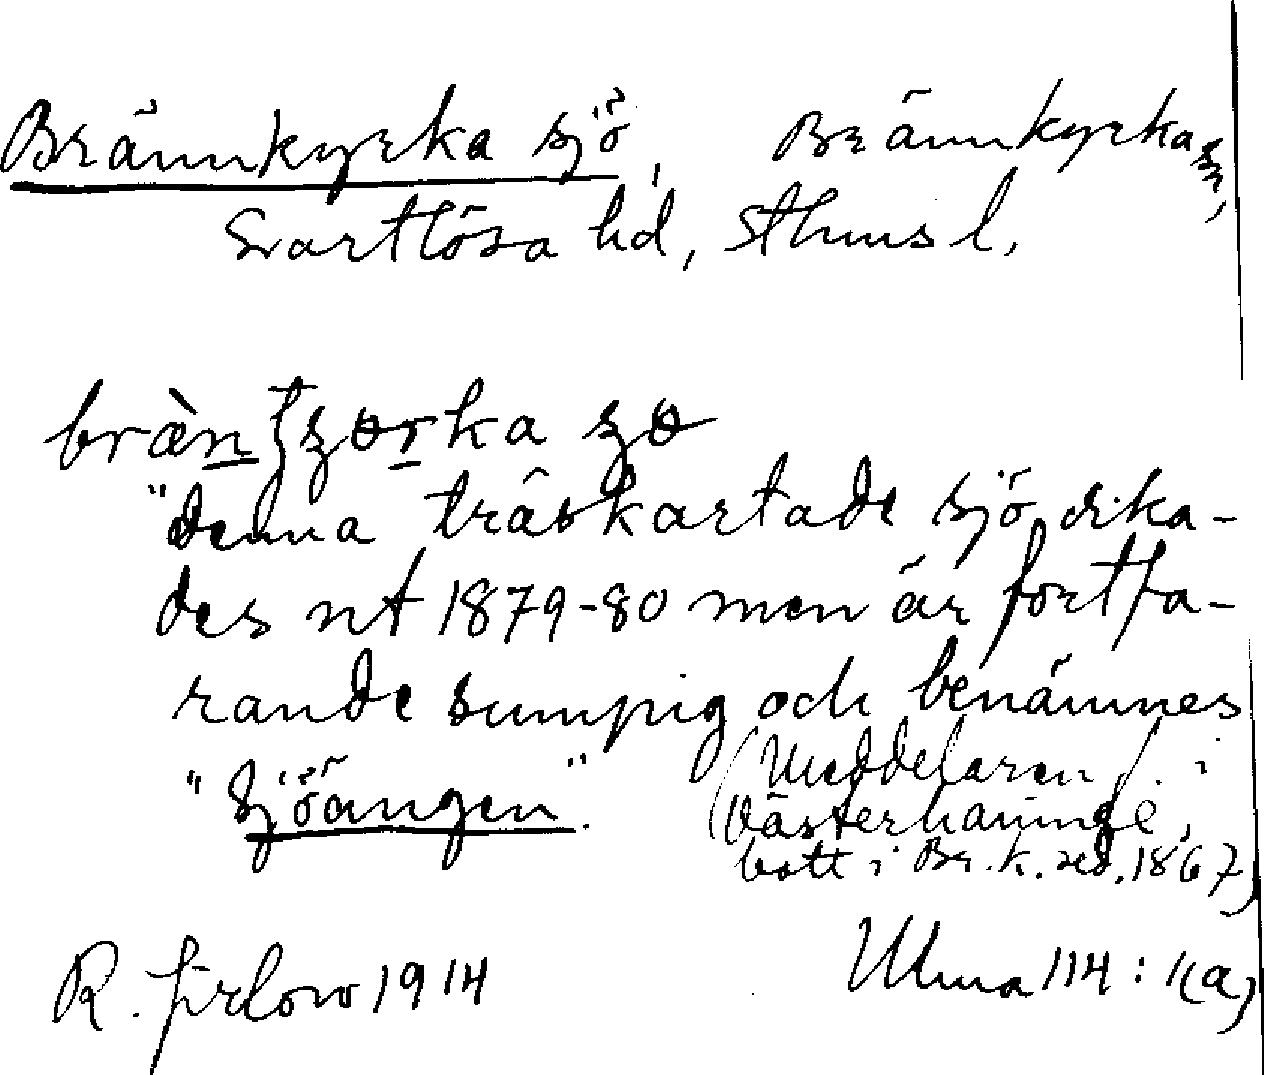 Brännkyrka sjö, Brännkyrka sn,
Svartlösa hd, Sthms l.
"denna träskartade sjö dika-
des ut 1879-80 men är fortfa-
rande sumpig och benämnes
"Sjöängen".
(Meddelaren f. i
Västerhaninge,
bott i Br.k. sed. 1867)
R. Jirlow 1914
Ulma 114:1(a)